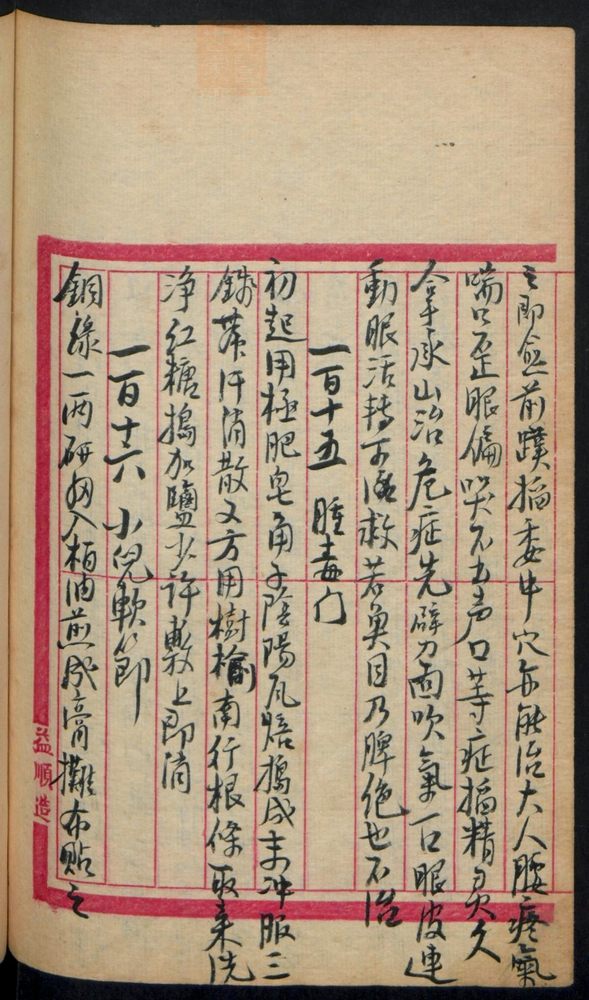 之即愈前蹼搯委中穴亦能治大人腰疼氣
喘口歪眼偏哭不出声口等症搯精灵久
拿承山治危症先辟刀面吹氣一口眼皮連
動眼活轉可治救若魚目乃脾絶也不治
一百十五 腫毒门
初起用極肥皂角子陰陽瓦焙搗成末冲服三
錢蓋汗消散又方用樹榆南行根條取来洗
净紅糖搗加鹽少許敷上即消
一百十六 小兒軟節
銅綠一两研細入柏油煎成膏攤布貼之
益順造